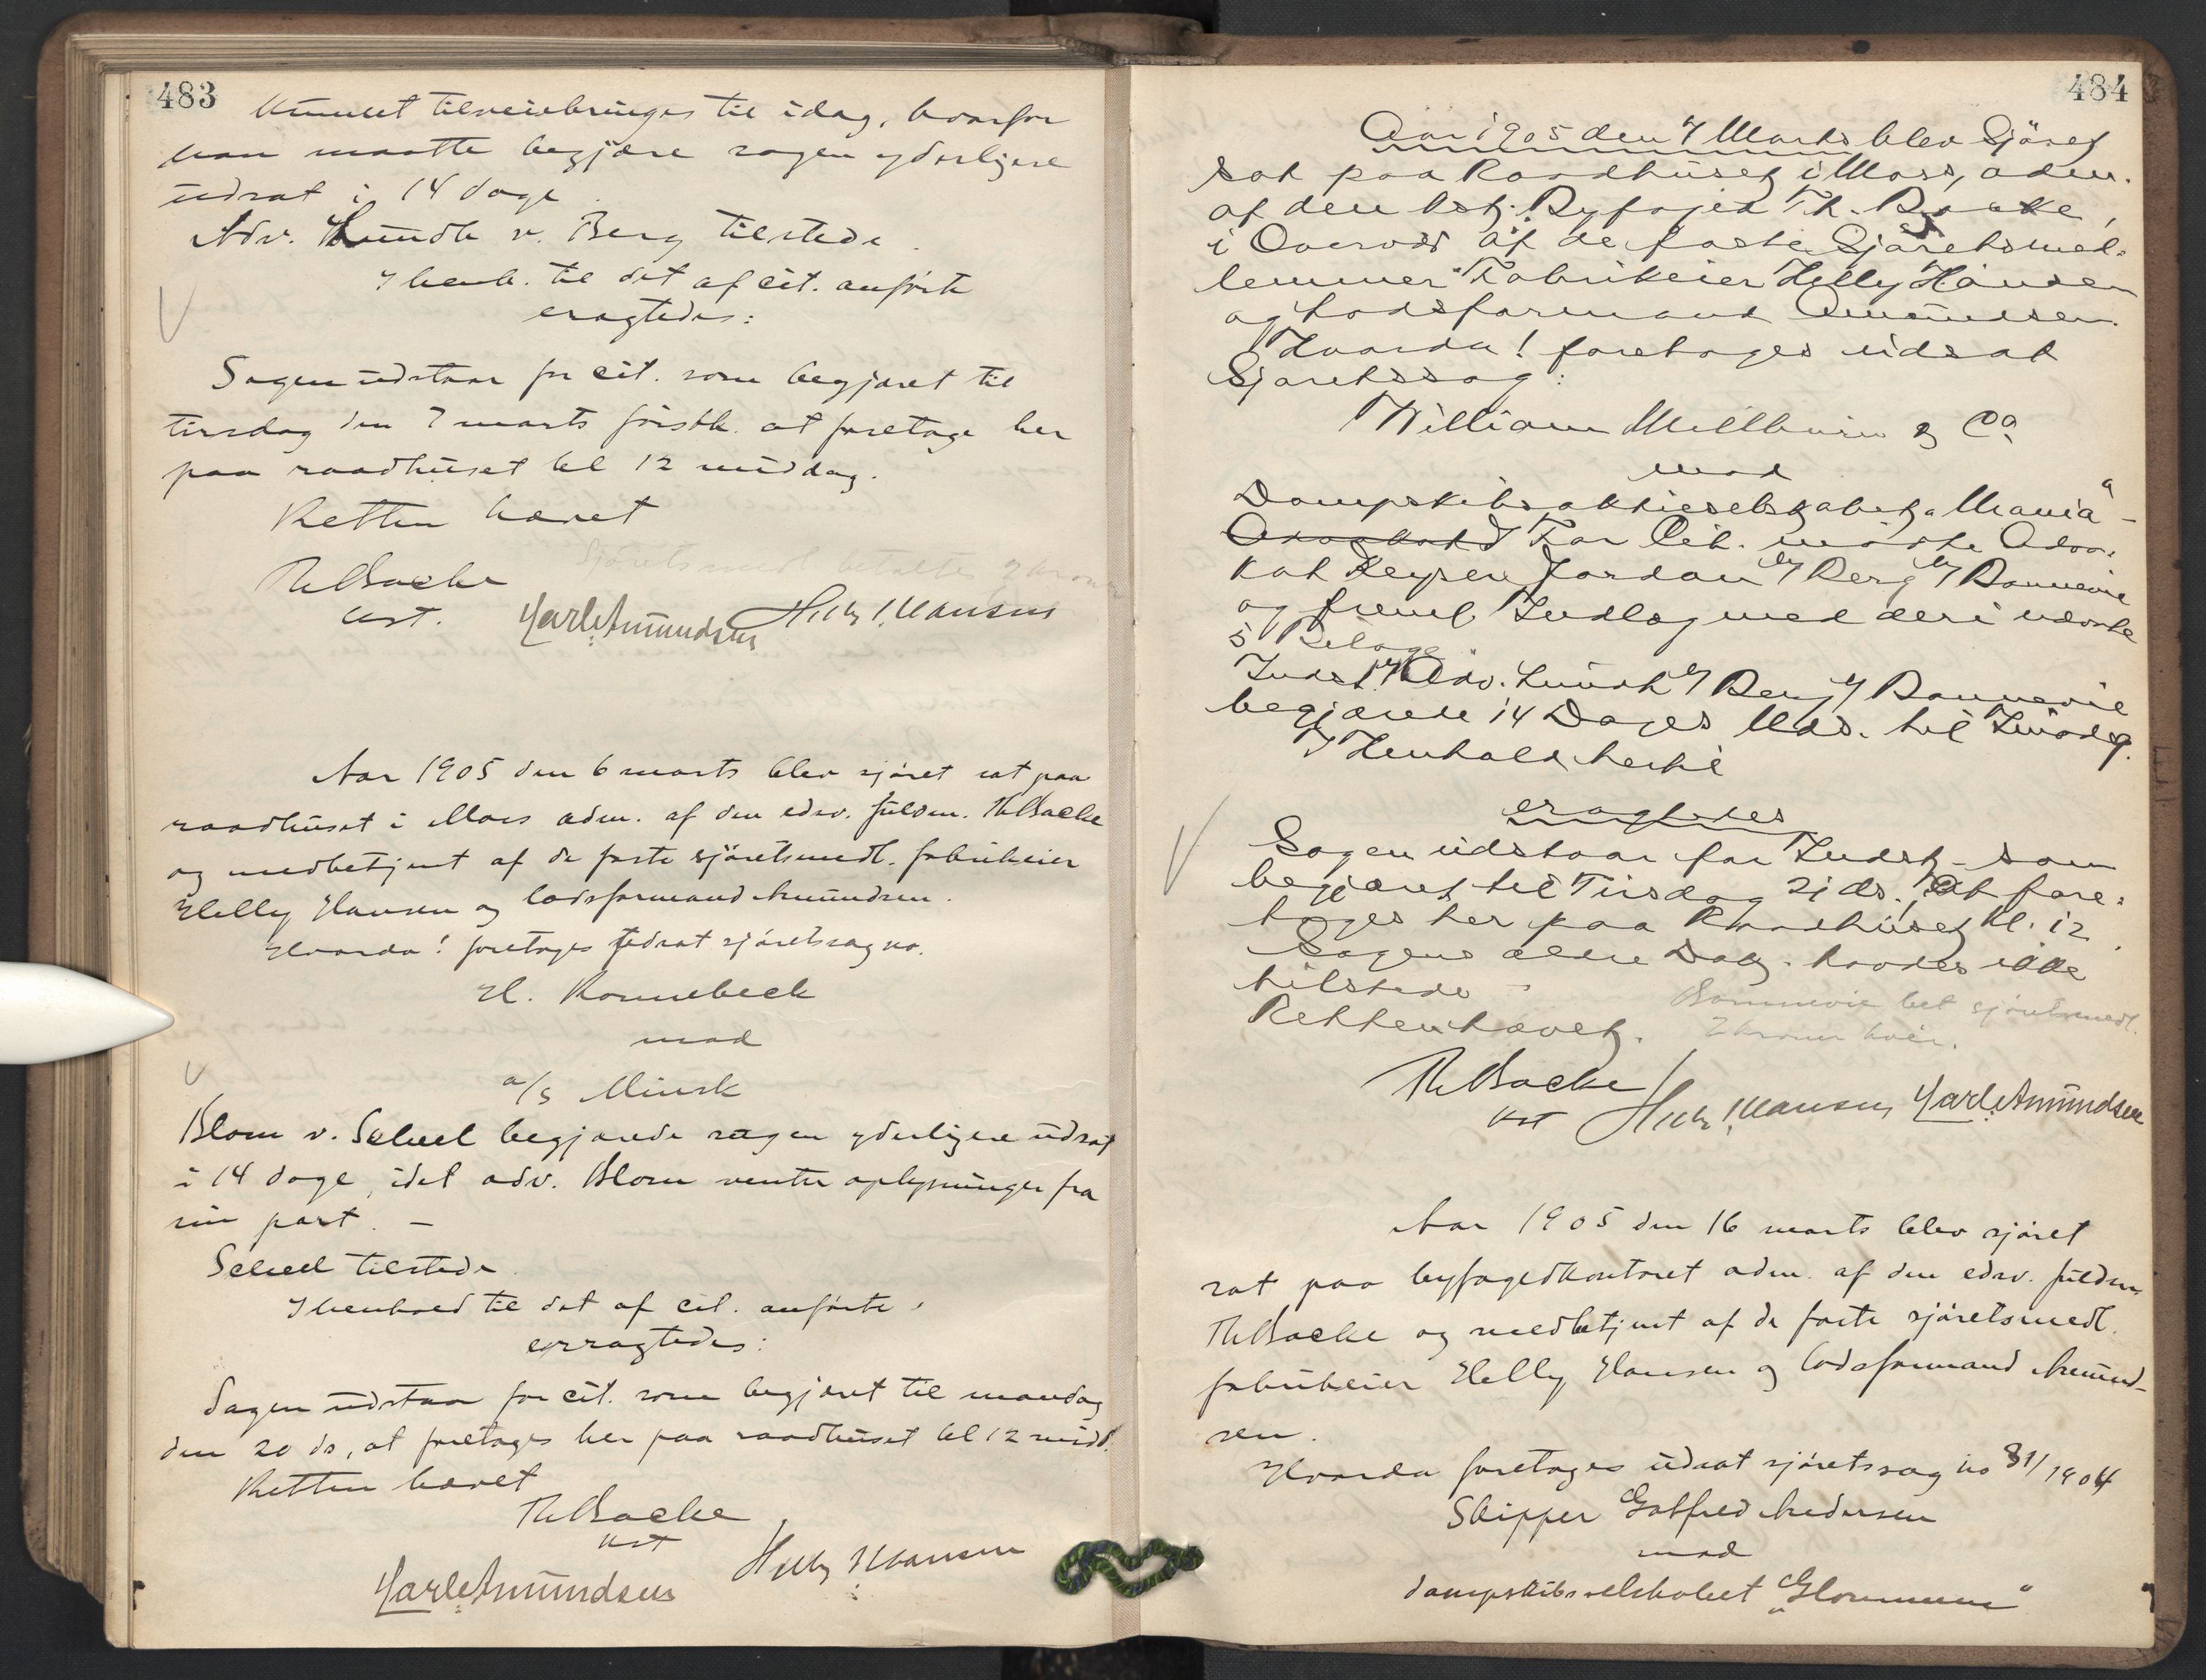 483
kunnet tilveiebringes til idag, hvorfor
man maatte begjære sagen yderligere
udsat i 14 dage
Adv. Lundh v. Berg tilstede.
I henh. til det af cit. anførte
eragtedes:
Sagen udstaar for cit. som begjæret til
tirsdag den 7 marts førstk. at foretage her
paa raadhuset kl 12 middag.
Retten hævet
Sjøretsmedl betaltes 2 kroner
ThBacke
kst. Karl Amundsen Helly J. Hansen
Aar 1905 den 6 marts blev sjøret sat paa
raadhuset i Moss adm. af den edsv. fuldm. ThBacke
og medbetjent af de faste sjøretsmedl. fabrikeier
Helly Hansen og lodsformand Amundsen.
Hvorda! foretages udsat sjøretssag no.
H. Ronnebeck
mod
a/s Minsk
Blom v. Scheel begjærede sagen yderligere udsat
i 14 dage, idet adv. Blom venter oplysninger fra
sin part. —
Scheel tilstede
I henhold til det af cit. anførte,
erragtedes:
Sagen udstaar for cit. som begjæret til mandag
den 20 ds, at foretages her paa raadhuset kl 12 midd.
Retten hævet
ThBacke
kst
Karl Amundsen Helly J Hansen
484
Aar 1905 den 7 Marts blev Sjøret
sat paa Raadhuset i Moss, adm.
af den kst. Byfoged Th. Backe,
i Overvær af de faste Sjøretsmed-
lemmer Fabrikeier Helly Hansen
og Lodsformand Amundsen.
Hvorda! foretages udsat
Sjøretssag:
William Millburn & Co.
mod
Dampskibsaktieselskabet "Mania" -
For Cit. mødte Advo-
kat Keyser Jordan v/ Berg v/ Bonnevie
og freml. Indlæg med deri nævnte
5 Bilage
Indst. v/ Adv. Lundh v/ Berg v/ Bonnevie
begjærede 14 Dages Uds. til Indlæg.
I Henhold hertil
eragtedes
Sagen udstaar for Indst. som
begjæret til Tirsdag 21 ds. at fore-
tages her paa Raadhuset kl. 12.
Sagens ældre Dok. havdes ikke
tilstede
Retten hævet.
Bonnevie bet sjøretsmedl.
2 kroner hver.
ThBacke
kst Helly J. Hansen Karl Amundsen
Aar 1905 den 16 marts blev sjøret
sat paa byfogedkontoret adm. af den edsv. fuldm.
ThBacke og medbetjent af de faste sjøretsmedl.
fabrikeier Helly Hansen og lodsformand Amund-
sen.
Hvorda foretages udsat sjøretssag no 31/1904
Skipper Gotfred Andersen
mod
dampskibsselskabet "Glommen"